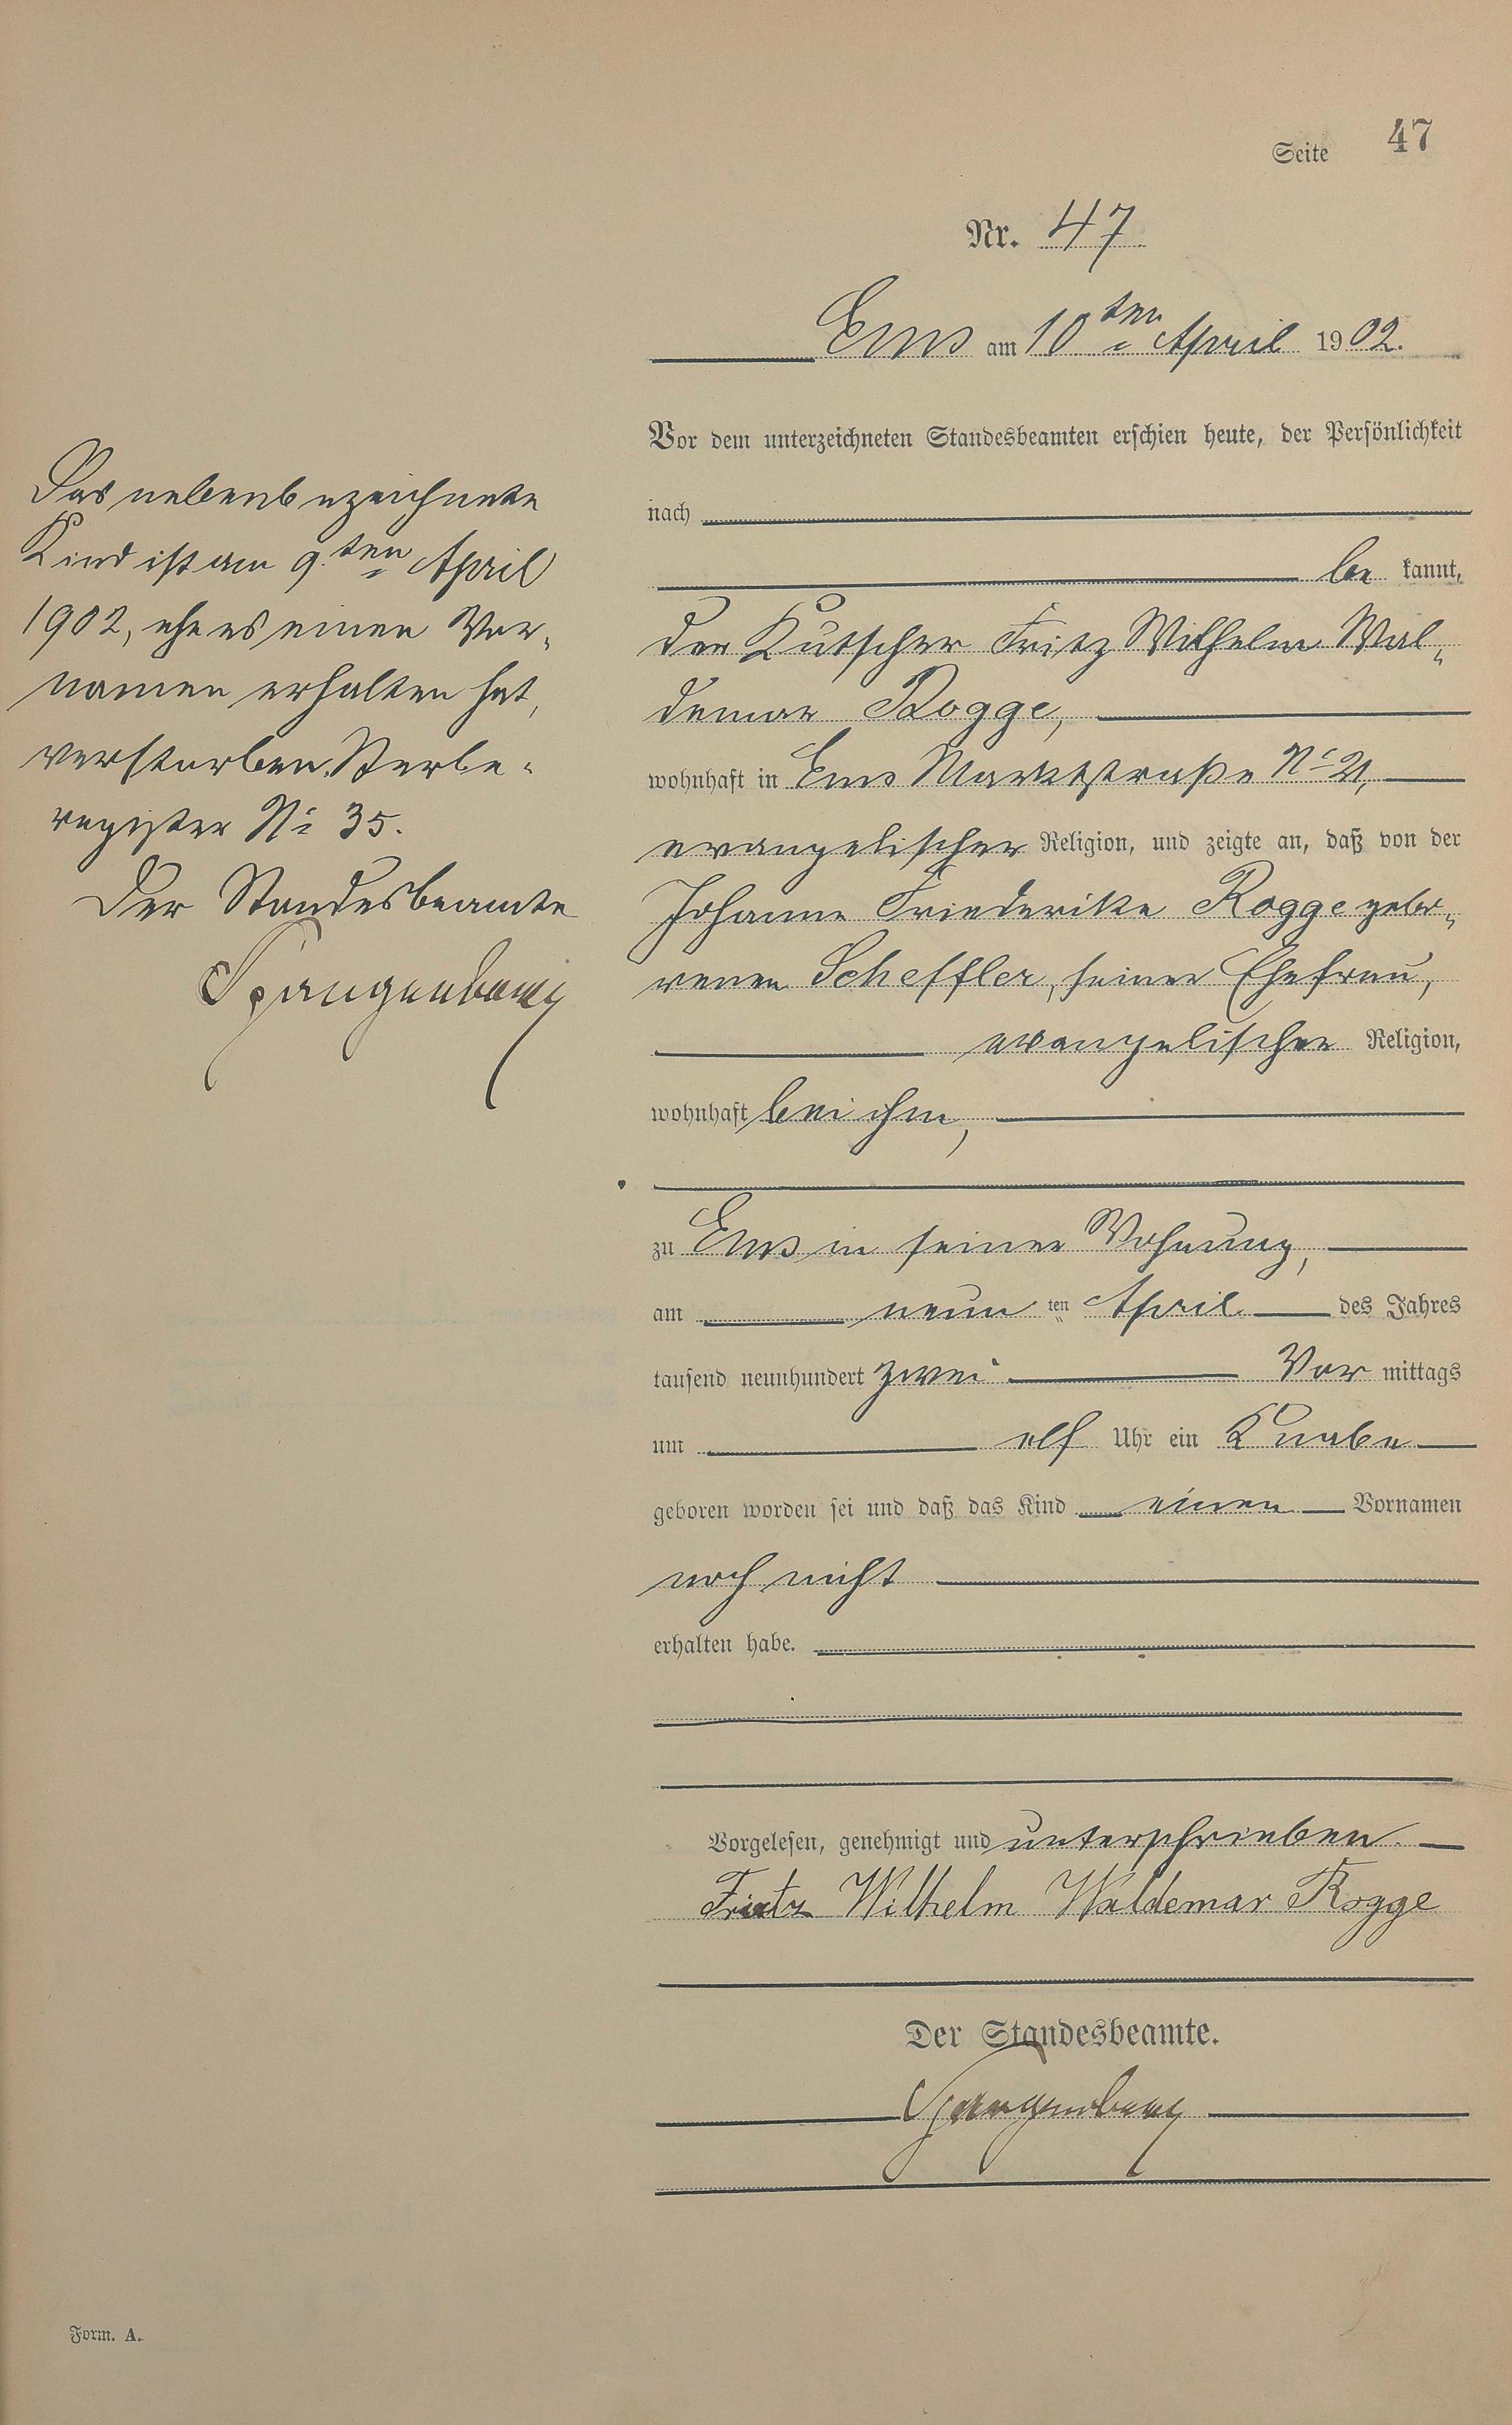 Seite 47
Nr. 47
Ems am 10ten April 1902.
Vor dem unterzeichneten Standesbeamten erschien heute, der Persönlichkeit
nach
be kannt,
der Kutscher Fritz Wilhelm Wal-
demar Rogge,
wohnhaft in Ems Marktstraße No 21,
evangelischer Religion, und zeigte an, daß von der
Johanne Friederike Rogge gebo-
renen Scheffler, seiner Ehefrau,
evangelischer Religion,
wohnhaft bei ihm,
zu Ems in seiner Wohnung,
am neun ten April des Jahres
tausend neunhundert zwei Vor mittags
um elf Uhr ein Knabe
geboren worden sei und daß das Kind einen Vornamen
noch nicht
erhalten habe.
Vorgelesen, genehmigt und unterschrieben.
Fritz Wilhelm Waldemar Rogge
Der Standesbeamte.
Spangenberg
Das nebenbezeichnete
Kind ist am 9.ten April
1902, ehe es einen Vor-
namen erhalten hat,
verstorben. Sterbe-
register No 35.
Der Standesbeamte
Spangenberg
Form. A.